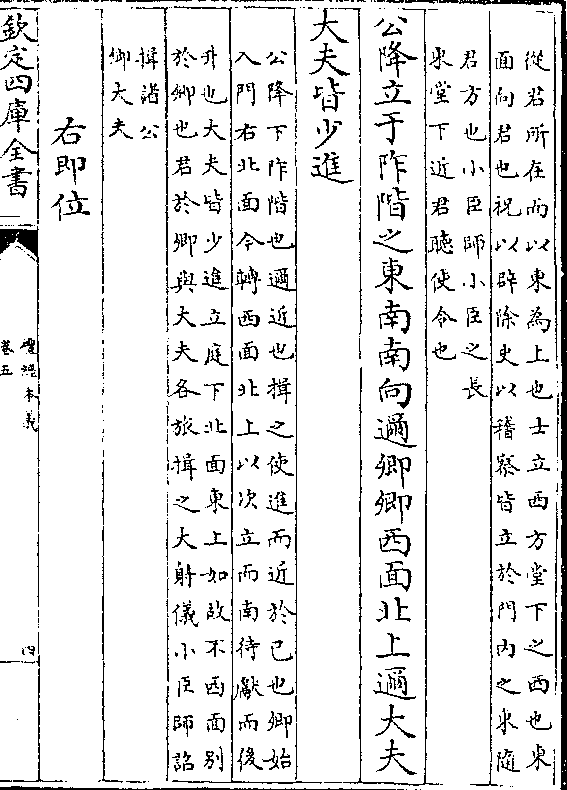 從君所在而以東為上也士立西方堂下之西也東
面向君也祝以辟除史以稽察皆立於門内之東隨
君方也小臣師小臣之長
東堂下近君聽使令也
公降立于阼階之東南南向邇卿卿西面北上邇大夫
大夫皆少進
公降下阼階也邇近也揖之使進而近於已也卿始
入門右北面今轉西面北上以次立而南待獻而後
升也大夫皆少進立庭下北面東上如故不西面别
於卿也君於卿與大夫各旅揖之大射儀小臣師詔
揖諸公
卿大夫
右即位
欽定四庫全書
禮經本義
卷五
四